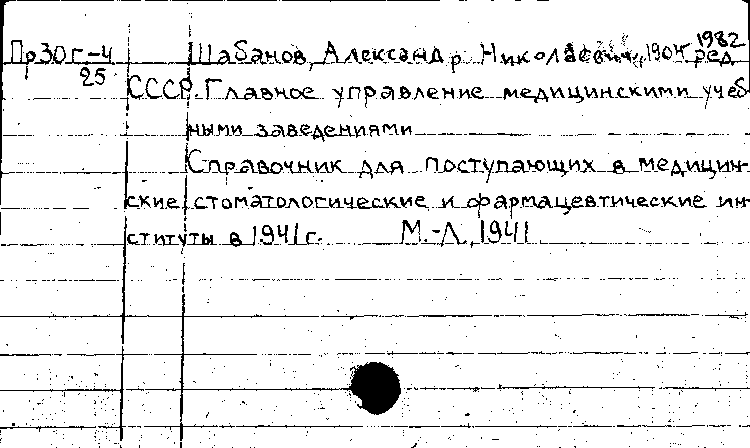 Пр30г.-4 Шабанов, Александр Николаевич, 1904 1982 ред.
25 СССР. Главное управление медицинскими учеб-
ными заведениями
Справочник для поступающих в медицин-
ские стоматологические и фармацевтические ин-
ституты в 1941 г. М.-Л., 1941